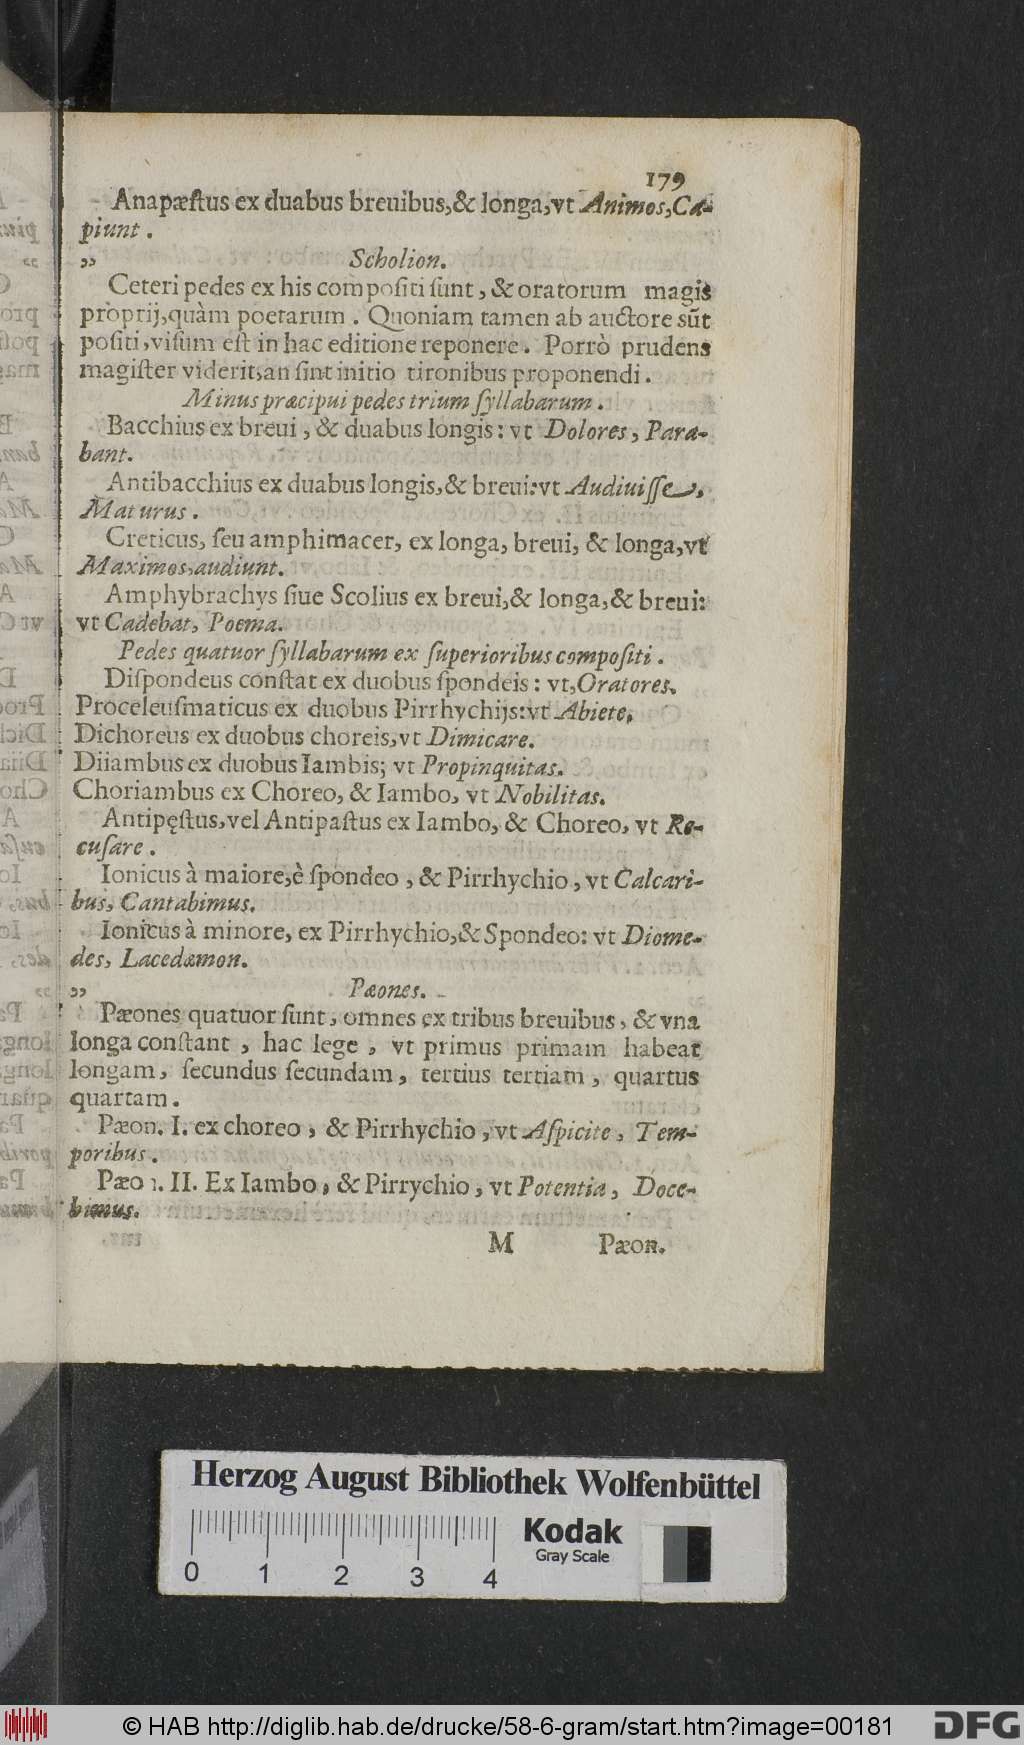 179
Anapæſtus ex duabus breuibus,& longa,vt Animos,Ca-
piunt .
„ Scholion.
Ceteri pedes ex his compoſiti ſunt , & oratorum magis
proprij,quàm poetarum . Quoniam tamen ab auctore sũt
poſiti,viſum eſt in hac editione reponere . Porrò prudens
magiſter viderit,an ſint initio tironibus proponendi .
Minus præcipui pedes trium ſyllabarum .
Bacchius ex breui , & duabus longis : vt Dolores , Para-
bant.
Antibacchius ex duabus longis,& breui:vt Audiuiſſe,
Maturus .
Creticus, ſeu amphimacer, ex longa, breui, & longa,vt
Maximos,audiunt.
Amphybrachys ſiue Scolius ex breui,& longa,& breui:
vt Cadebat, Poema.
Pedes quatuor ſyllabarum ex ſuperioribus compoſiti .
Diſpondeus conſtat ex duobus ſpondeis : vt,Oratores.
Proceleuſmaticus ex duobus Pirrhychijs:vt Abiete,
Dichoreus ex duobus choreis,vt Dimicare.
Diiambus ex duobus Iambis; vt Propinquitas.
Choriambus ex Choreo, & Iambo, vt Nobilitas.
Antipęſtus,vel Antipaſtus ex Iambo, & Choreo, vt Re-
cuſare .
Ionicus à maiore,è ſpondeo , & Pirrhychio , vt Calcari-
bus, Cantabimus.
Ionicus à minore, ex Pirrhychio,& Spondeo: vt Diome-
des, Lacedæmon.
„ Pæones.
Pæones quatuor ſunt, omnes ex tribus breuibus , & vna
longa conſtant , hac lege , vt primus primam habeat
longam , ſecundus ſecundam , tertius tertiam , quartus
quartam .
Pæon. I. ex choreo , & Pirrhychio , vt Aſpicite , Tem-
poribus .
Pæon. II. Ex Iambo , & Pirrychio , vt Potentia , Doce-
bimus.
M Pæon.
Herzog August Bibliothek Wolfenbüttel
Kodak
Gray Scale
0 1 2 3 4
© HAB http://diglib.hab.de/drucke/58-6-gram/start.htm?image=00181
DFG